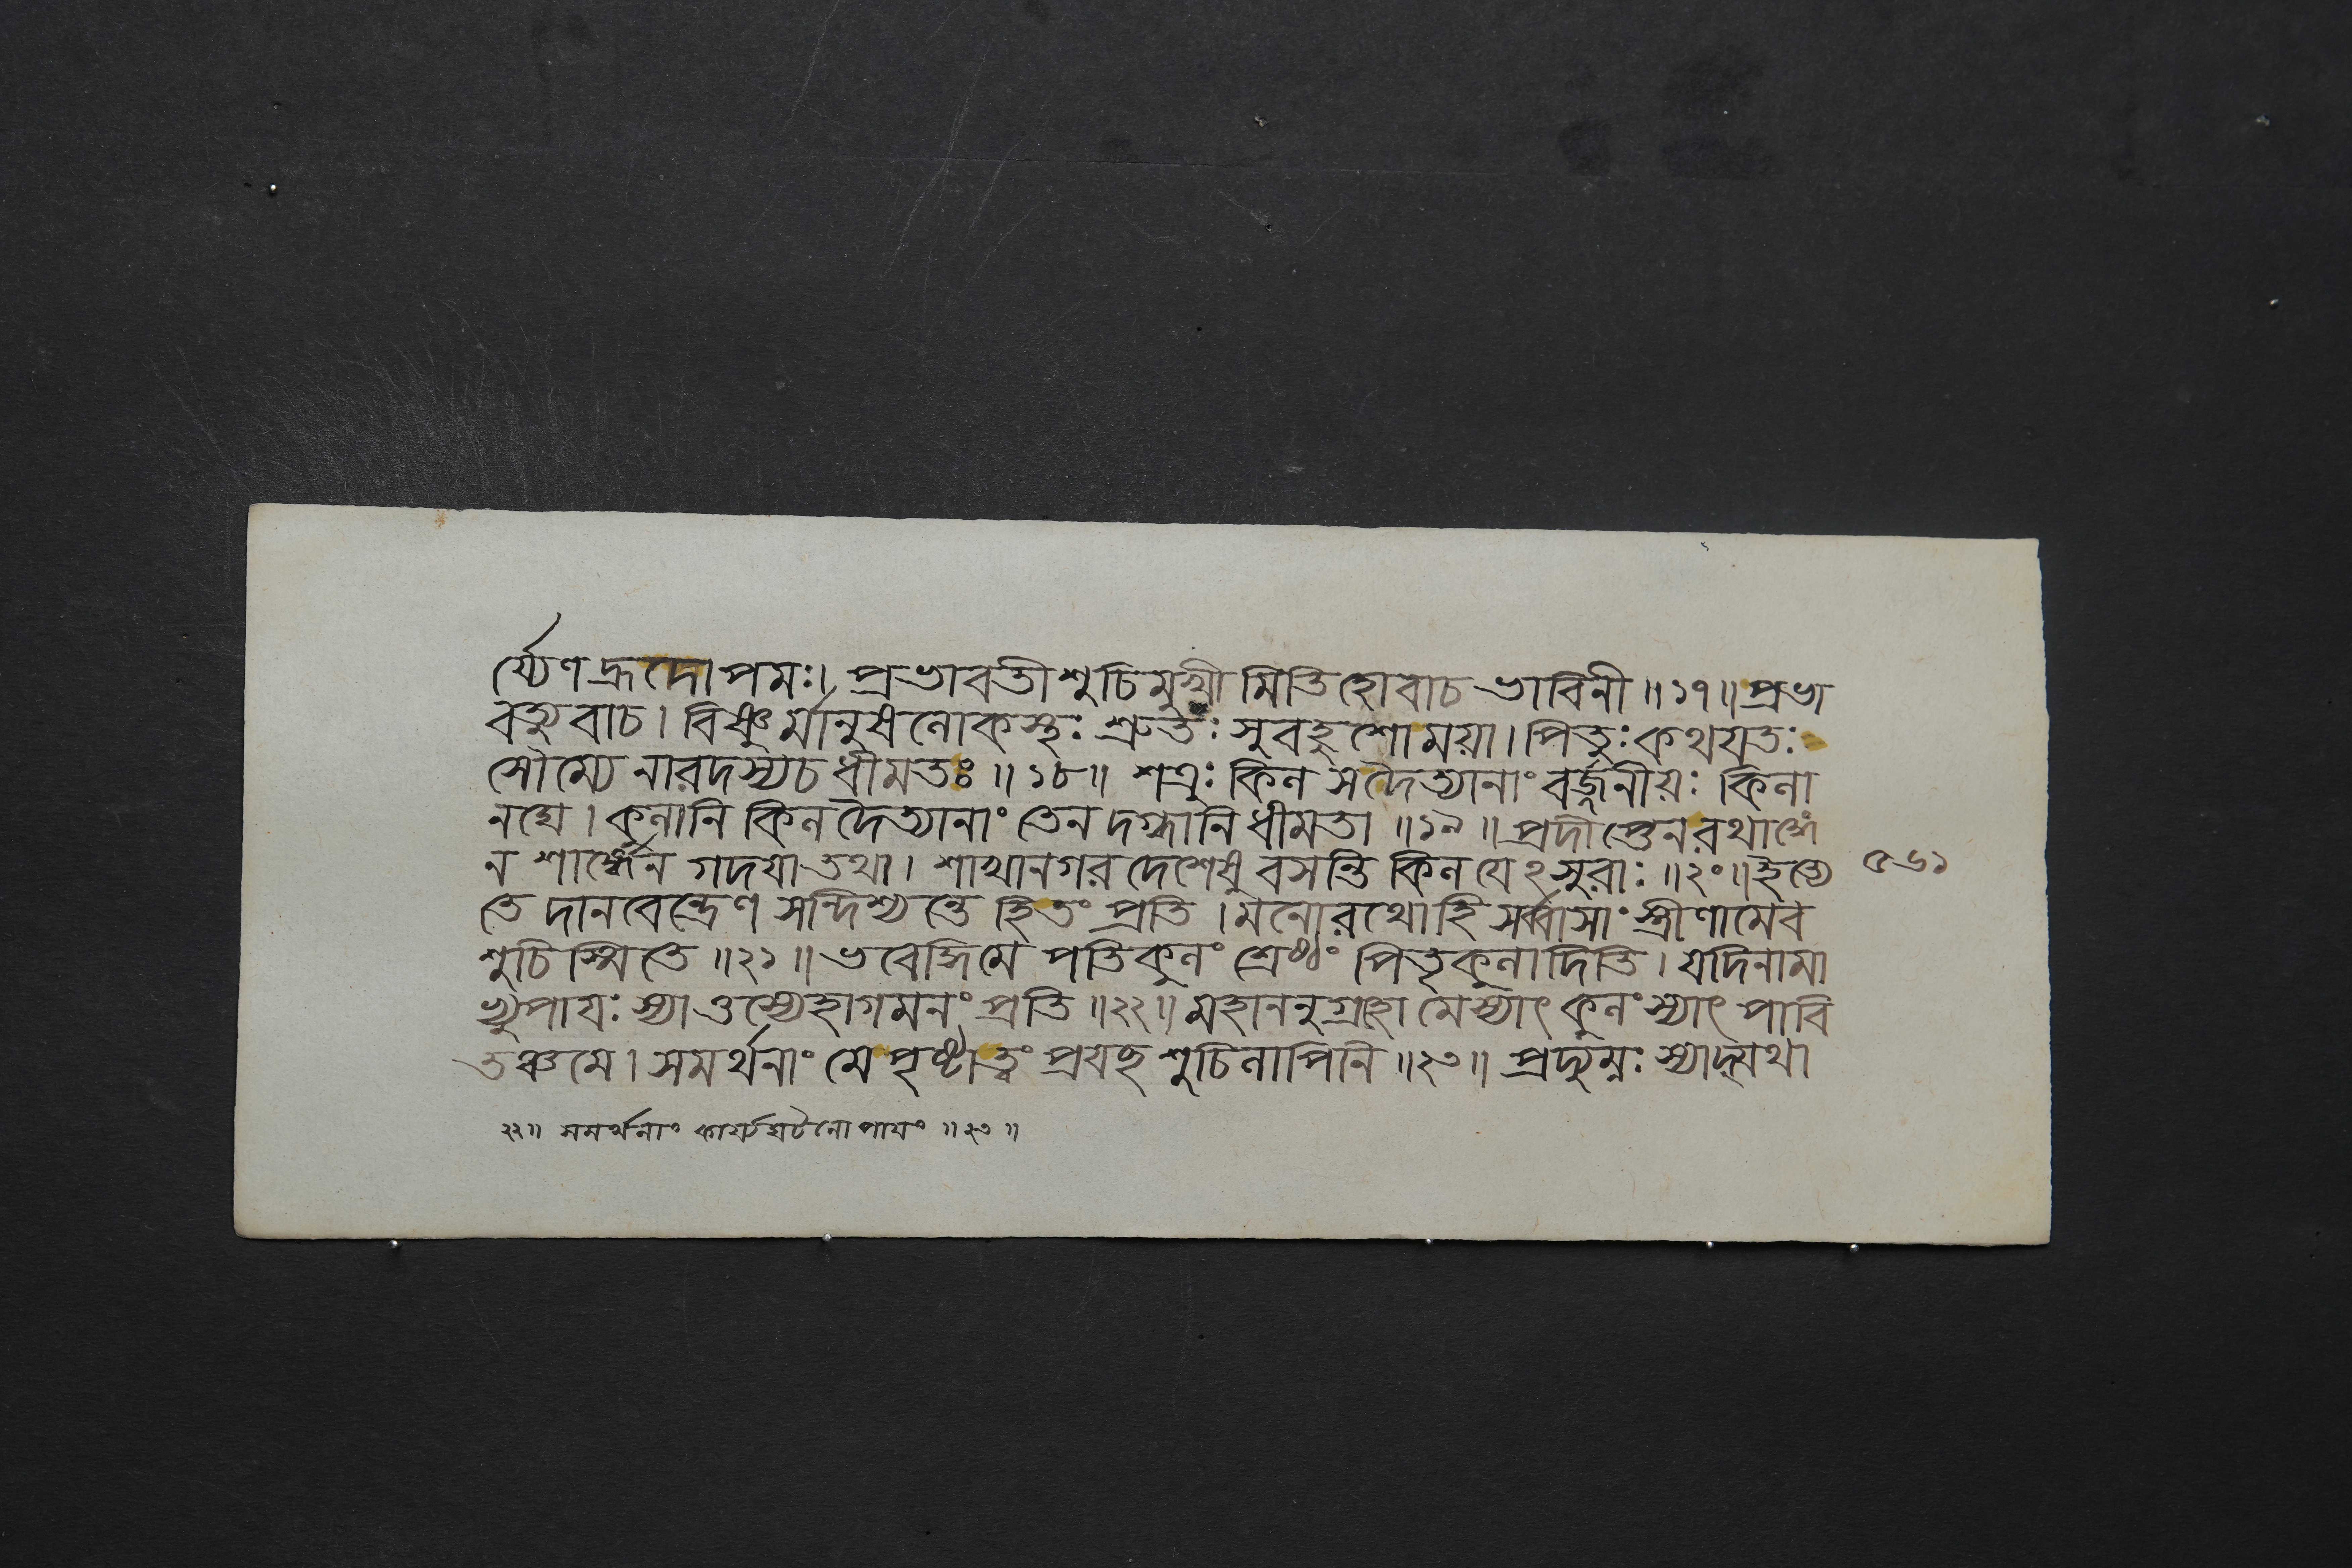 র্য্যেণ হ্রদোপমঃ। প্রভাবতী শুচিমুখীমিতি হোবাচ ভাবিনী॥১৭॥ প্রভা
বত্যুবাচ। বিষ্ণুর্মানুষলোকস্থঃ শ্রুতঃ সুবহুশো ময়া। পিতুঃ কথযতঃ
সৌম্যে নারদস্য চ ধীমতঃ॥১৮॥ শত্রুঃ কিল স দৈত্যানাং বর্জ্জনীয়ঃ কিলা
নঘে। কুলানি কিল দৈত্যানাং তেন দগ্ধানি ধীমতা॥১৯॥ প্রদীপ্তেন রথাঙ্গে
ন শার্ঙ্গেন গদযা তথা। শাখানগরদেশেষু বসন্তি কিল যেঽসুরাঃ॥২০॥ ইত্যে
তে দানবেন্দ্রেণ সন্দিশ্যন্তে হিতং প্রতি। মনোরথো হি সর্ব্বাসাং স্ত্রীণামেব
শুচিস্মিতে॥২১॥ ভবেদ্ধি মে পতিকুলং শ্রেষ্ঠং পিতৃকুলাদিতি। যদি নামা
ভ্যুপাযঃ স্যাত্তস্যেহাগমনং প্রতি॥২২॥ মহাননুগ্রহো মে স্যাৎ কুলং স্যাৎ পাবি
তঞ্চ মে। সমর্থনাং মে পৃষ্টা ত্বং প্রযচ্ছ শুচিলাপিনি॥২৩॥ প্রদ্যুম্নঃ স্যাদ্যথা
৫৬১
২২॥ সমর্থনাং কার্য্যঘটনোপাযং॥২৩॥